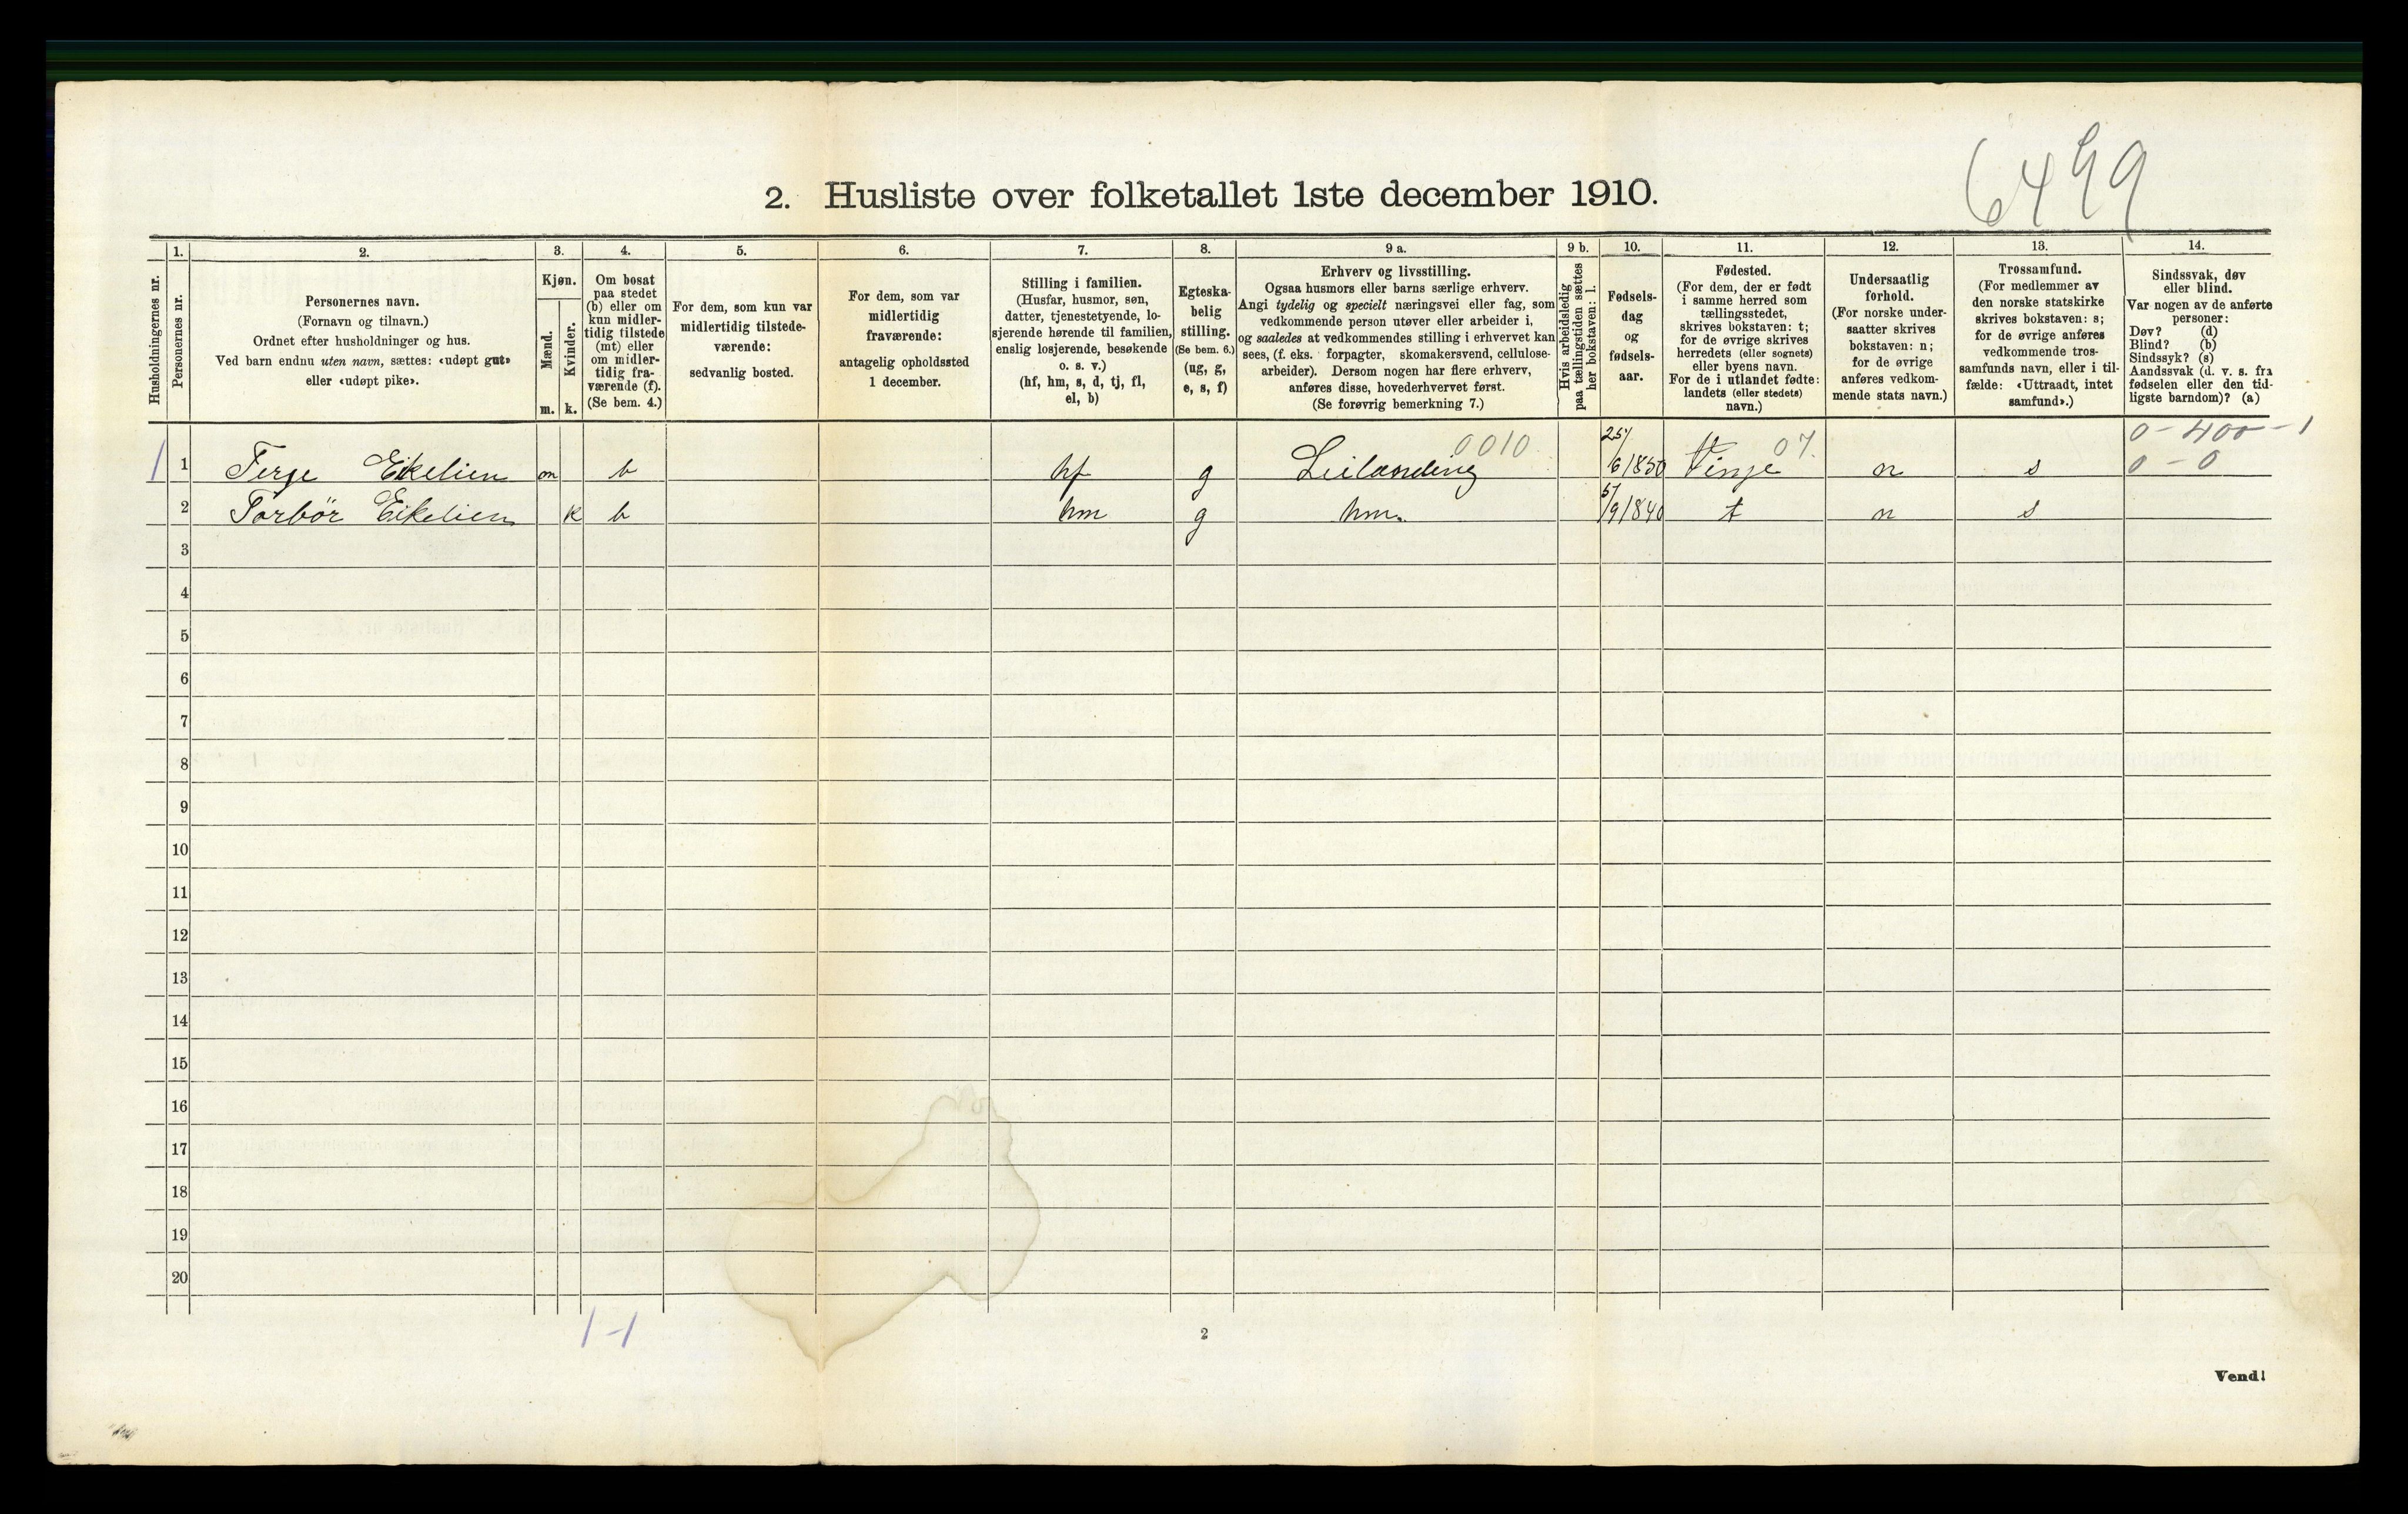 6499
2. Husliste over folketallet 1ste december 1910.
Husholdningernes nr.
1.
Personernes nr.
2.
Personernes navn.
(Fornavn og tilnavn.)
Ordnet efter husholdninger og hus.
Ved barn endnu uten navn, sættes: «udøpt gut»
eller «udøpt pike».
3.
Kjøn.
Mænd.
Kvinder.
m. k.
4.
Om bosat
paa stedet
(b) eller om
kun midler-
tidig tilstede
(mt) eller
om midler-
tidig fra-
værende (f).
(Se bem. 4.)
5.
For dem, som kun var
midlertidig tilstede-
værende:
sedvanlig bosted.
6.
For dem, som var
midlertidig
fraværende:
antagelig opholdssted
1 december.
7.
Stilling i familien.
(Husfar, husmor, søn,
datter, tjenestetyende, lo-
sjerende hørende til familien,
enslig losjerende, besøkende
o. s. v.)
(hf, hm, s, d, tj, fl,
el, b)
8.
Egteska-
belig
stilling.
(Se bem. 6.)
(ug, g,
e, s, f)
9 a.
Erhverv og livsstilling.
Ogsaa husmors eller barns særlige erhverv.
Angi tydelig og specielt næringsvei eller fag, som
vedkommende person utøver eller arbeider i,
og saaledes at vedkommendes stilling i erhvervet kan
sees, (f. eks. forpagter, skomakersvend, cellulose-
arbeider). Dersom nogen har flere erhverv,
anføres disse, hovederhvervet først.
(Se forøvrig bemerkning 7.)
9 b.
Hvis arbeidsledig
paa tællingstiden sættes
her bokstaven: l.
10.
Fødsels-
dag
og
fødsels-
aar.
11.
Fødested.
(For dem, der er født
i samme herred som
tællingsstedet,
skrives bokstaven: t;
for de øvrige skrives
herredets (eller sognets)
eller byens navn.
For de i utlandet fødte:
landets (eller stedets)
navn.)
12.
Undersaatlig
forhold.
(For norske under-
saatter skrives
bokstaven: n;
for de øvrige
anføres vedkom-
mende stats navn.)
13.
Trossamfund.
(For medlemmer av
den norske statskirke
skrives bokstaven: s;
for de øvrige anføres
vedkommende tros-
samfunds navn, eller i til-
fælde: «Uttraadt, intet
samfund».)
14.
Sindssvak, døv
eller blind.
Var nogen av de anførte
personer:
Døv? (d)
Blind? (b)
Sindssyk? (s)
Aandssvak (d. v. s. fra
fødselen eller den tid-
ligste barndom)? (a)
0010 07. 0 - 400 - 1
1 1 Terge Eikelien m b hf g Leilænding 25/6 1850 Vinje n s 0 - 0
2 Torbör Eikelien k b hm g hm. 5/9 1840 t n s
3
4
5
6
7
8
9
10
11
12
13
14
15
16
17
18
19
20
1-1
2
Vend!